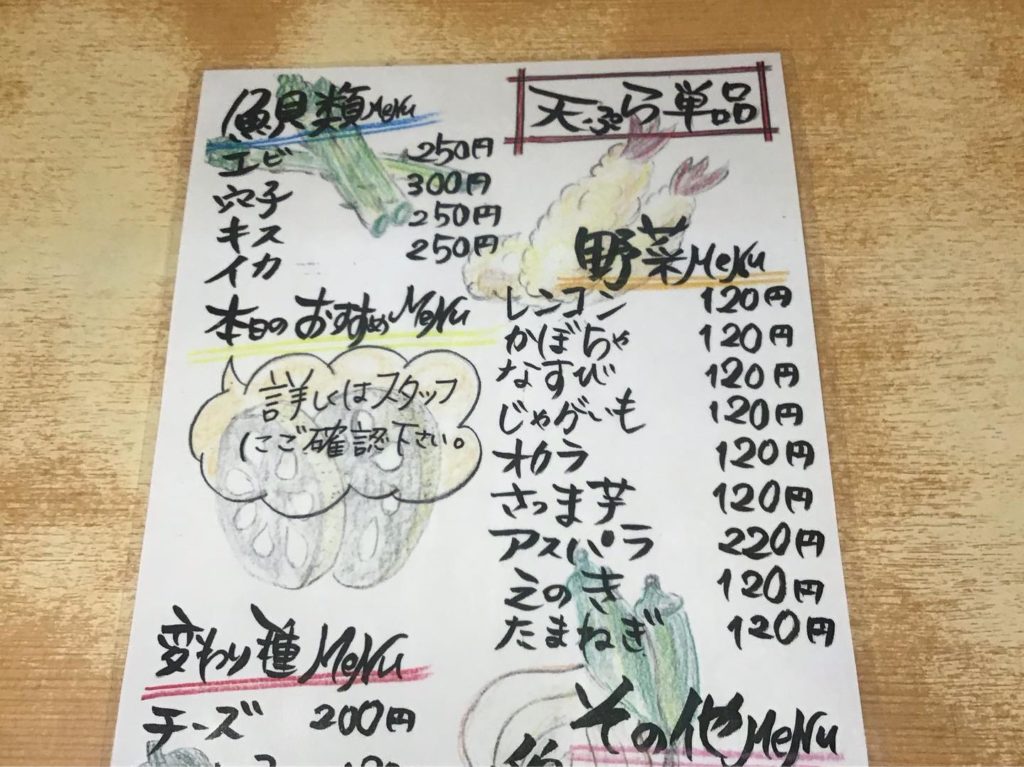 天ぷら単品
魚貝類 MeNu
エビ 250円
穴子 300円
キス 250円
イカ 250円
本日のおすすめ MeNu
詳しくはスタッフ
にご確認下さい。
変わり種 MeNu
チーズ 200円
野菜 MeNu
レンコン 120円
かぼちゃ 120円
なすび 120円
じゃがいも 120円
オクラ 120円
さつま芋 120円
アスパラ 220円
えのき 120円
たまねぎ 120円
その他 MeNu